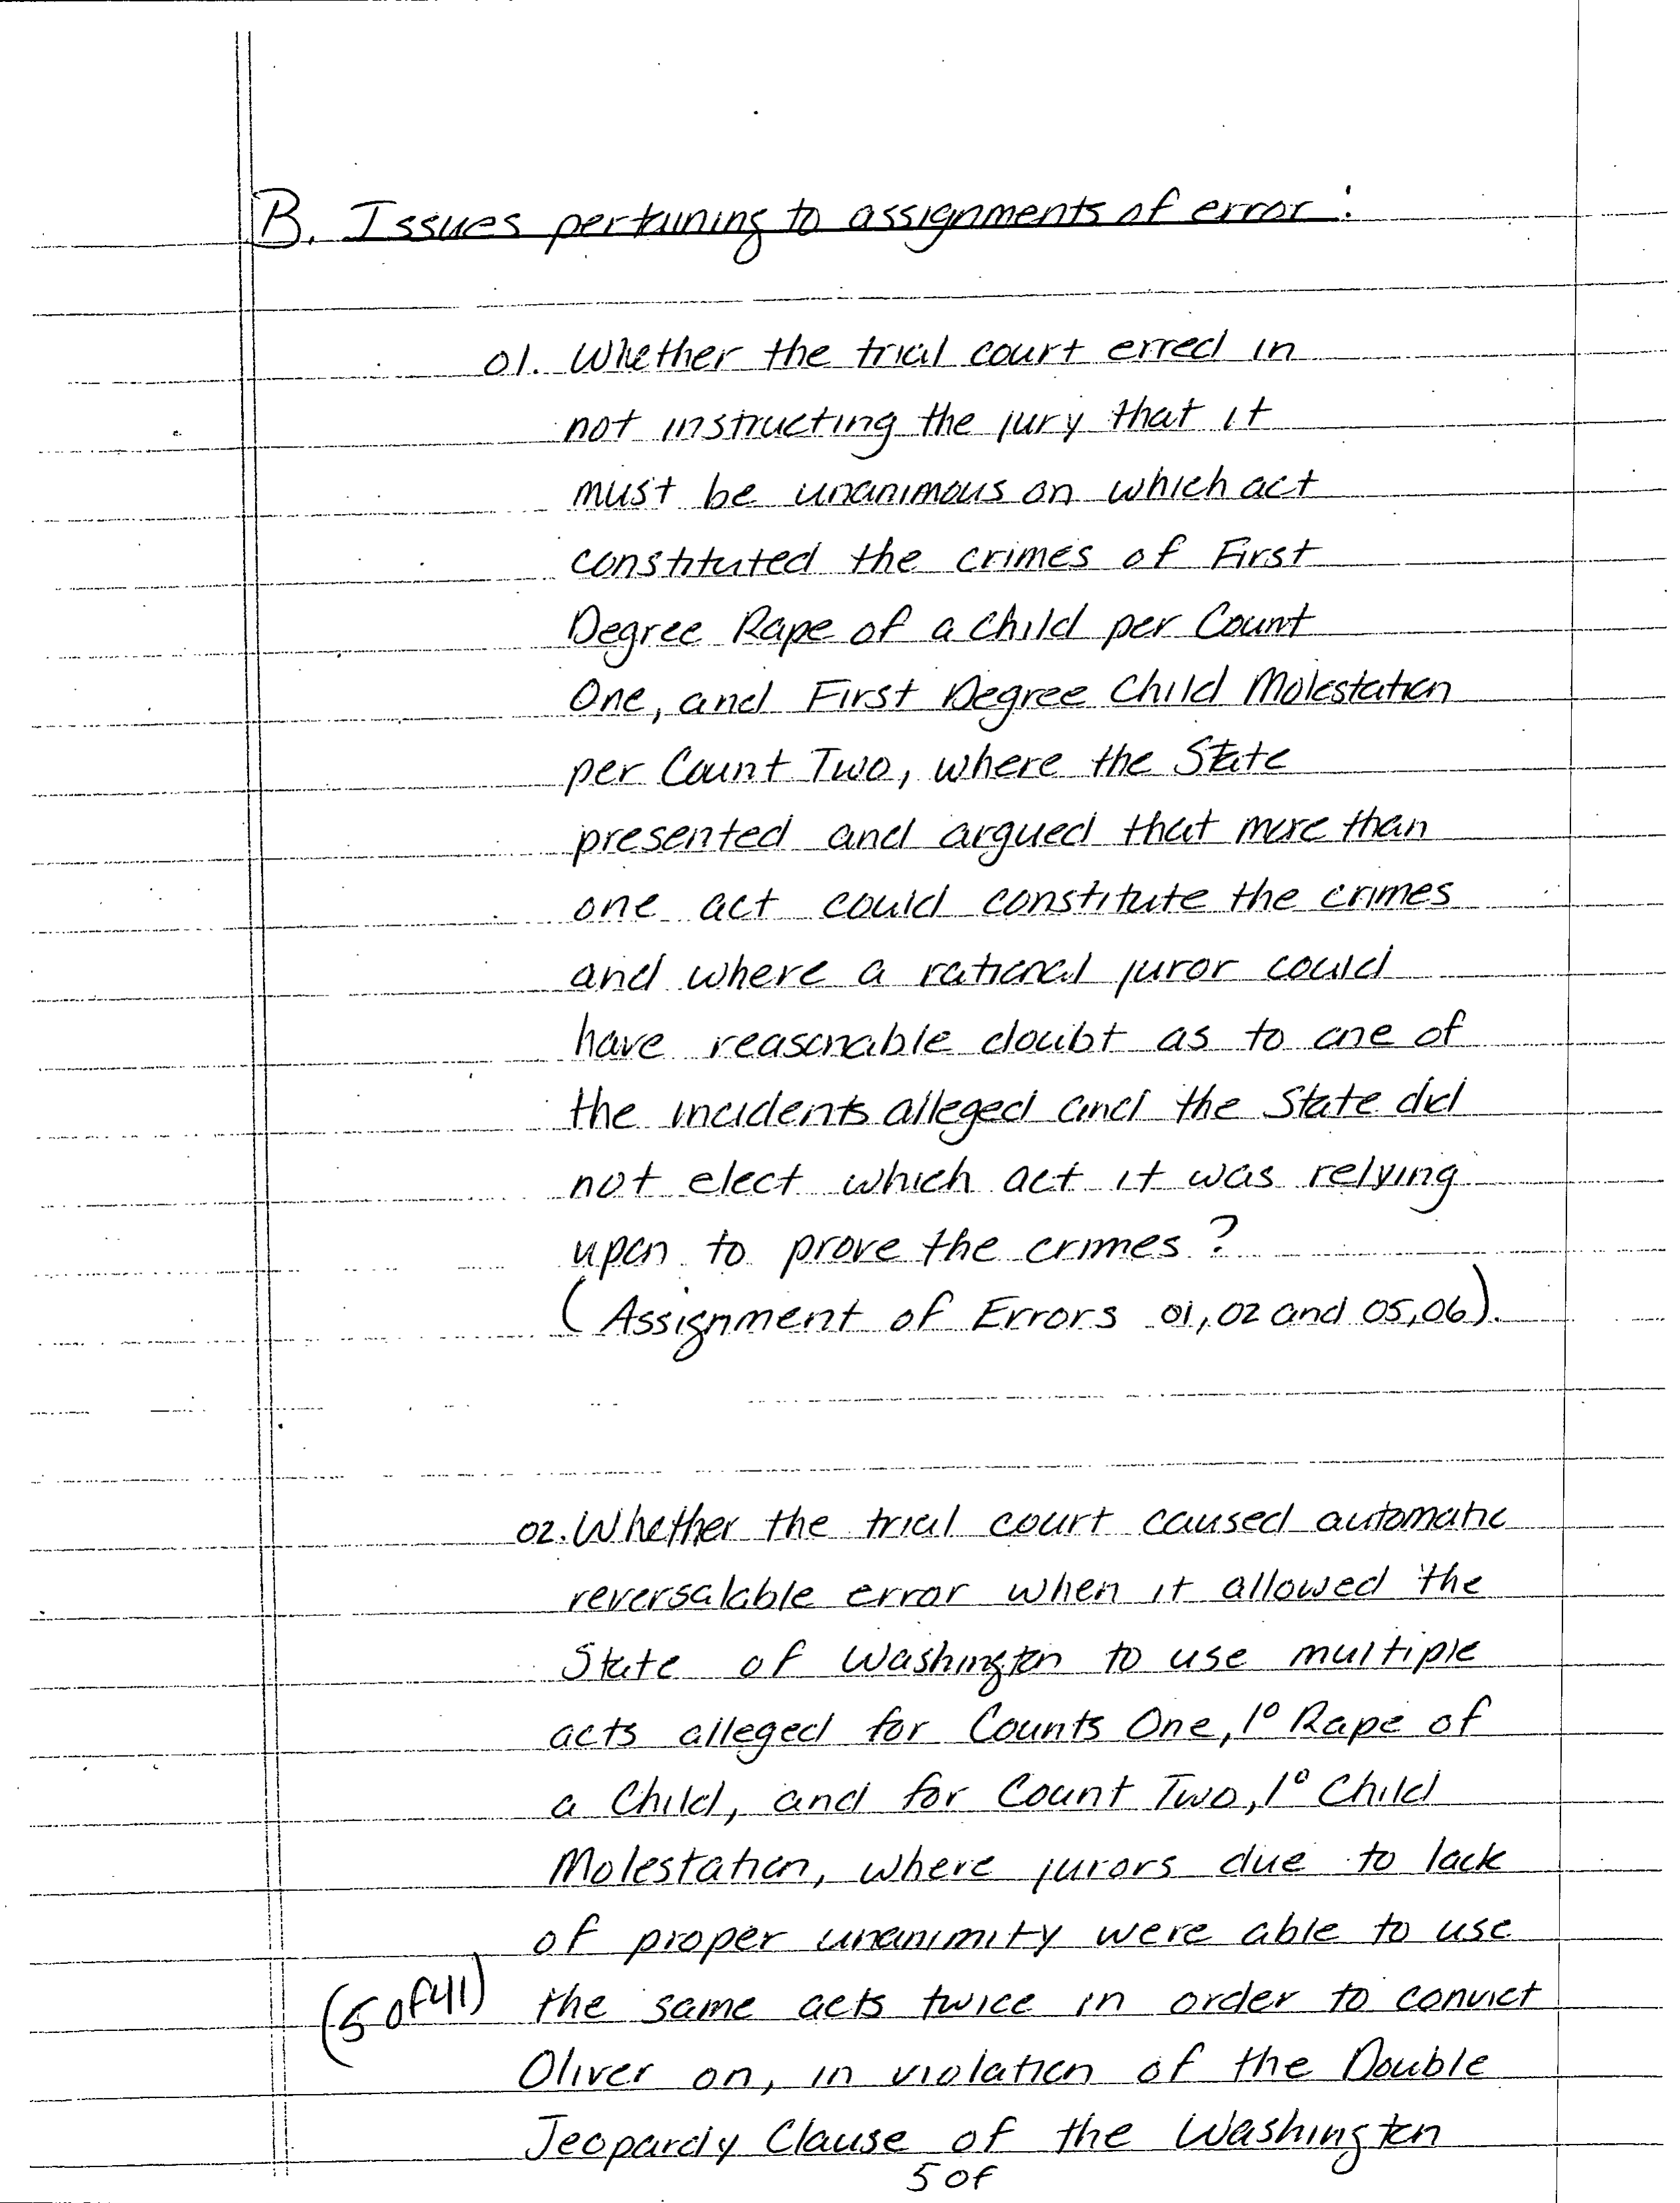 B. Issues pertaining to assignments of error:
01. Whether the trial court erred in
not instructing the jury that it
must be unanimous on which act
constituted the crimes of First
Degree Rape of a Child per Count
One, and First Degree Child Molestation
per Count Two, where the State
presented and argued that more than
one act could constitute the crimes
and where a rational juror could
have reasonable doubt as to one of
the incidents alleged and the State did
not elect which act it was relying
upon to prove the crimes?
(Assignment of Errors 01,02 and 05,06).
02. Whether the trial court caused automatic
reversalable error when it allowed the
State of Washington to use multiple
acts alleged for Counts One, 1° Rape of
a Child, and for Count Two, 1° Child
Molestation, where jurors due to lack
of proper unanimity were able to use
(5 of 41) the same acts twice in order to convict
Oliver on, in violation of the Double
Jeopardy Clause of the Washington
5 of